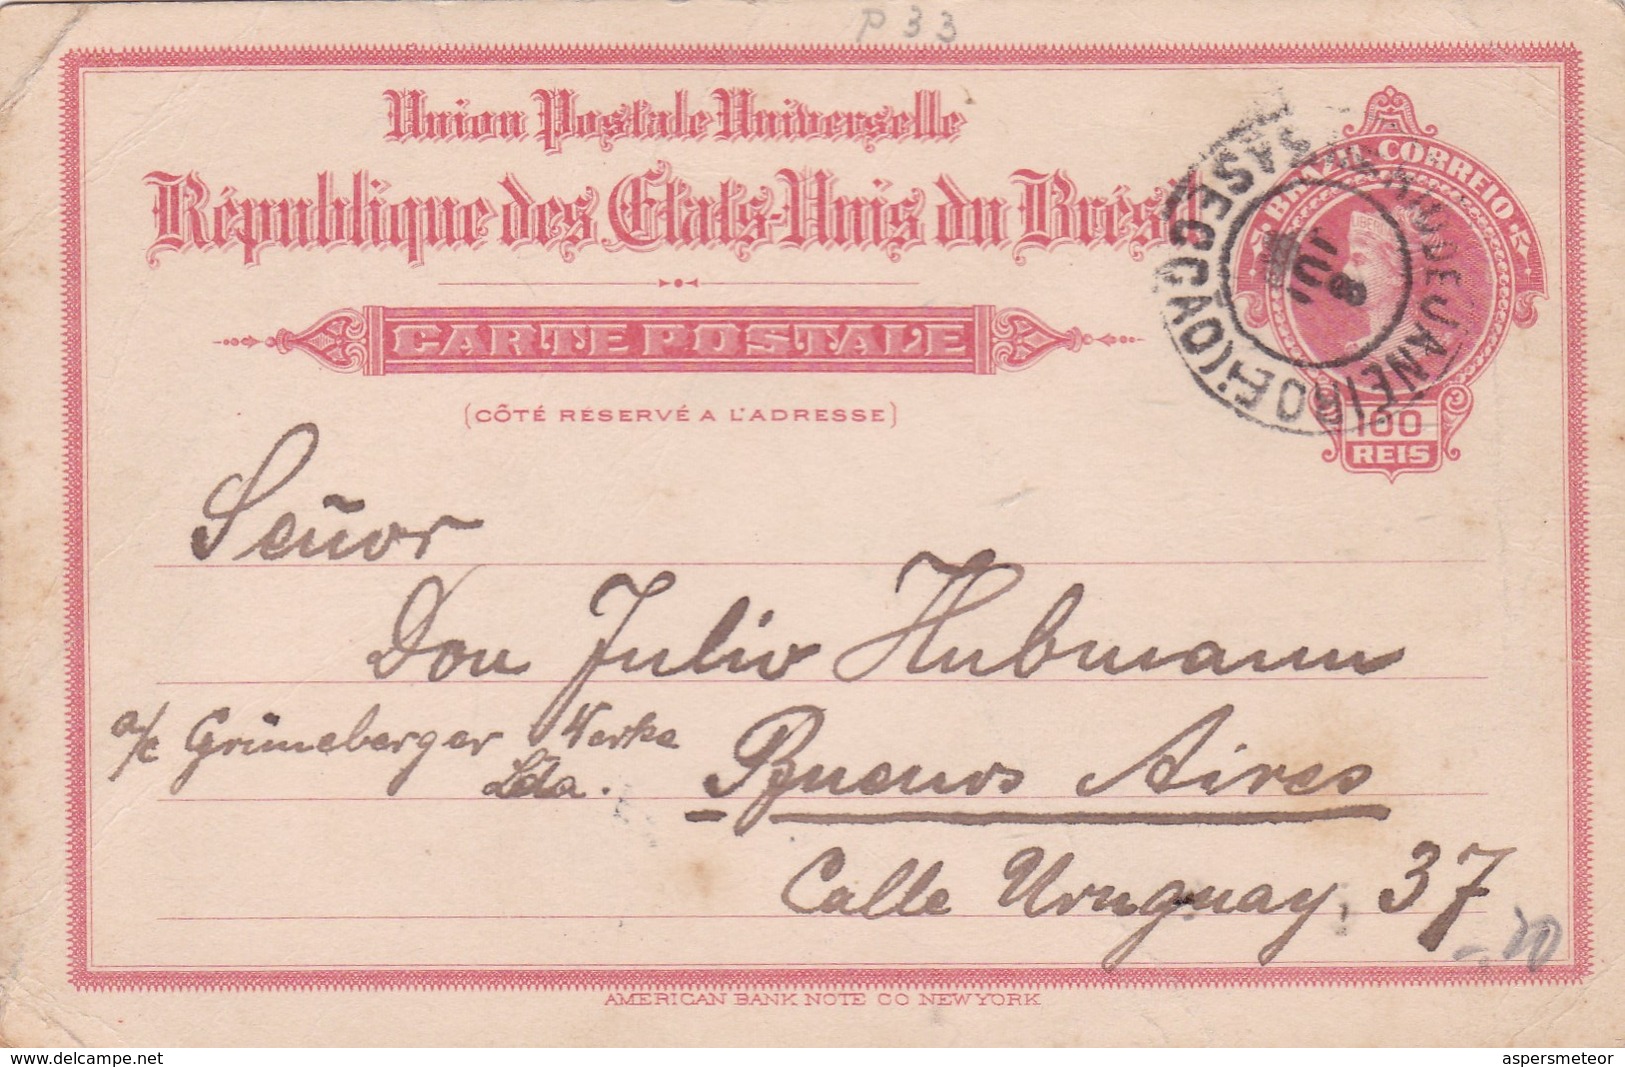 P 33
Union Postale Universelle
République des États-Unis du Brésil
CARTE POSTALE
(CÔTÉ RÉSERVÉ A L'ADRESSE)
BRAZIL CORREIO
LIBERDADE
100
REIS
RIO DE JANEIRO
8
JUL
Señor
Don Julio Hubmann
a/c Grüneberger Werke
Lda.
Buenos Aires
Calle Uruguay 37
AMERICAN BANK NOTE CO NEW YORK
www.delcampe.net
aspersmeteor